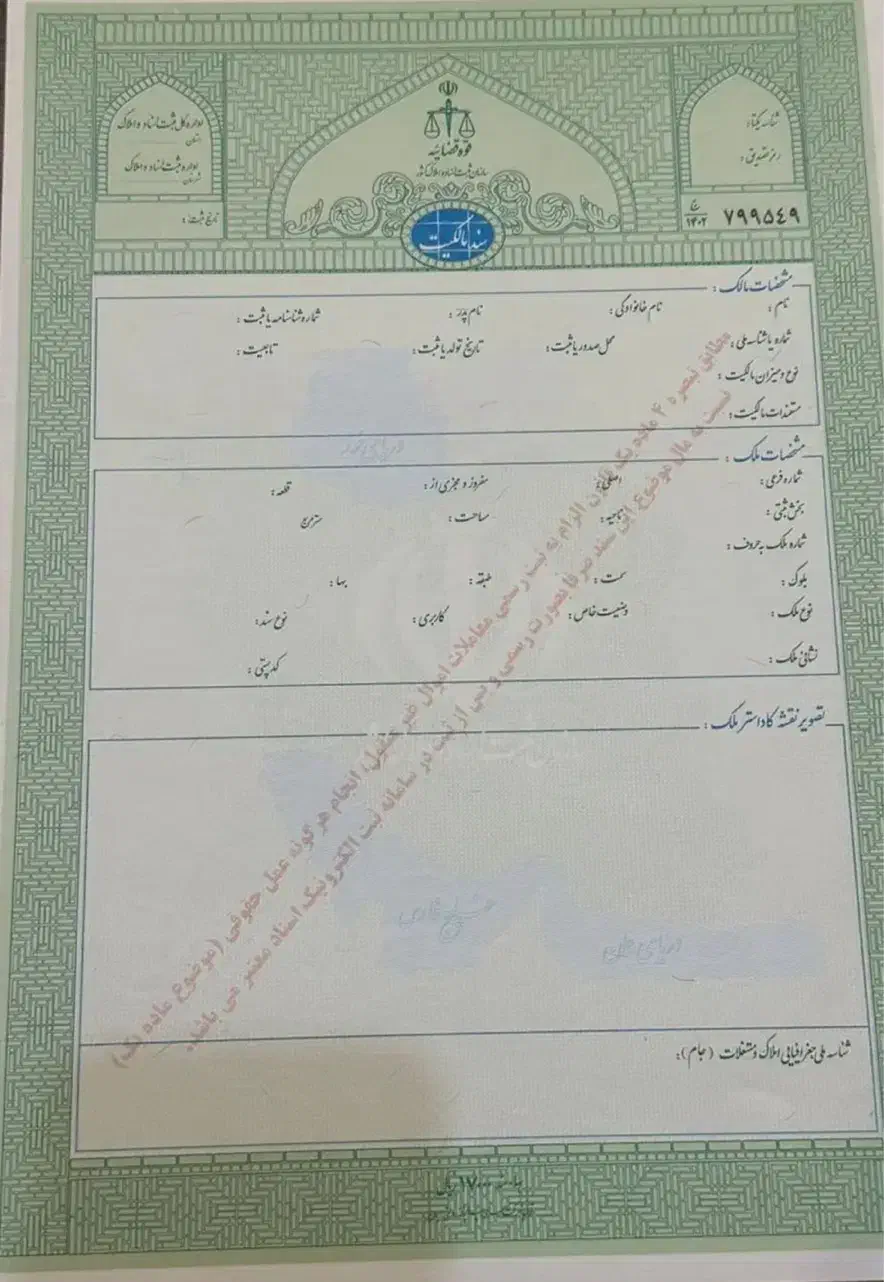 قوه قضائیه
سازمان ثبت اسناد و املاک کشور
سند مالکیت
شناسه یکتا:
رمز تصدیق:
۷۹۹۵۴۹
۱۴۰۲
اداره کل ثبت اسناد و املاک
استان
اداره ثبت اسناد و املاک
شهرستان
تاریخ ثبت:
مشخصات مالک:
نام: نام خانوادگی: نام پدر: شماره شناسنامه یا ثبت:
شماره یا شناسه ملی: محل صدور یا ثبت: تاریخ تولد یا ثبت: تابعیت:
نوع و میزان مالکیت:
مستندات مالکیت:
دریای خزر
مشخصات ملک:
شماره فرعی: اصلی: مفروز و مجزی از: قطعه:
بخش ثبتی: ناحیه: مساحت: مترمربع
شماره ملک به حروف:
بلوک: سمت: طبقه: بها:
نوع ملک: وضعیت خاص: کاربری: نوع سند:
نشانی ملک: کد پستی:
مطابق تبصره ۴ ماده یک قانون الزام به ثبت رسمی معاملات اموال غیر منقول، انجام هر گونه عمل حقوقی (موضوع ماده یک)
نسبت به مال موضوع این سند صرفا بصورت رسمی و پس از ثبت در سامانه ثبت الکترونیک اسناد معتبر می باشد.
تصویر نقشه کاداستر ملک:
خلیج فارس
دریای عمان
شناسه ملی جغرافیایی املاک و مستغلات (جام):
۱۷۰۰۰ ریال